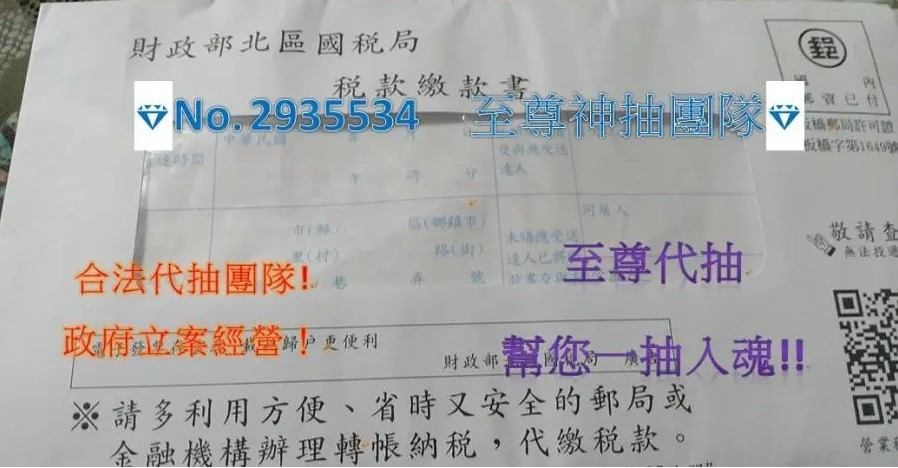 財政部北區國稅局
稅款繳款書
No. 2935534 至尊神抽團隊
國 內
郵資已付
板橋郵局許可證
板橋字第1649號
中華民國 年
午 時 分
交與應受送
達人
同居人
市(縣) 區(鄉鎮市)
里(村) 路(街)
巷 弄 號
未獲應受送
達人已將
敬請查
無法投遞
至尊代抽
合法代抽團隊!
政府立案經營!
歸戶更便利
財政部
幫您一抽入魂!!
※請多利用方便、省時又安全的郵局或
金融機構辦理轉帳納稅,代繳稅款。
營業稅